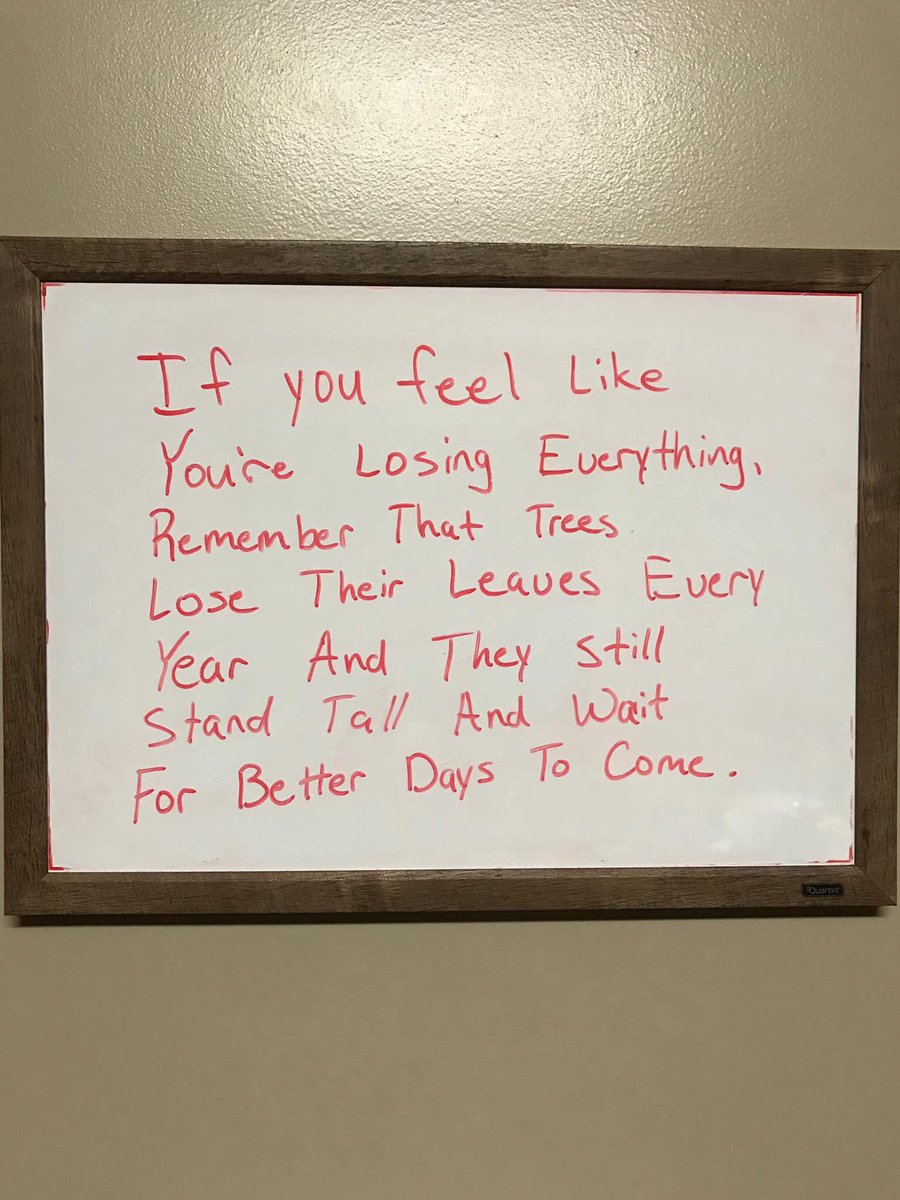 If you feel Like
You're Losing Everything,
Remember That Trees
Lose Their Leaves Every
Year And They Still
Stand Tall And Wait
For Better Days To Come.
Quartet